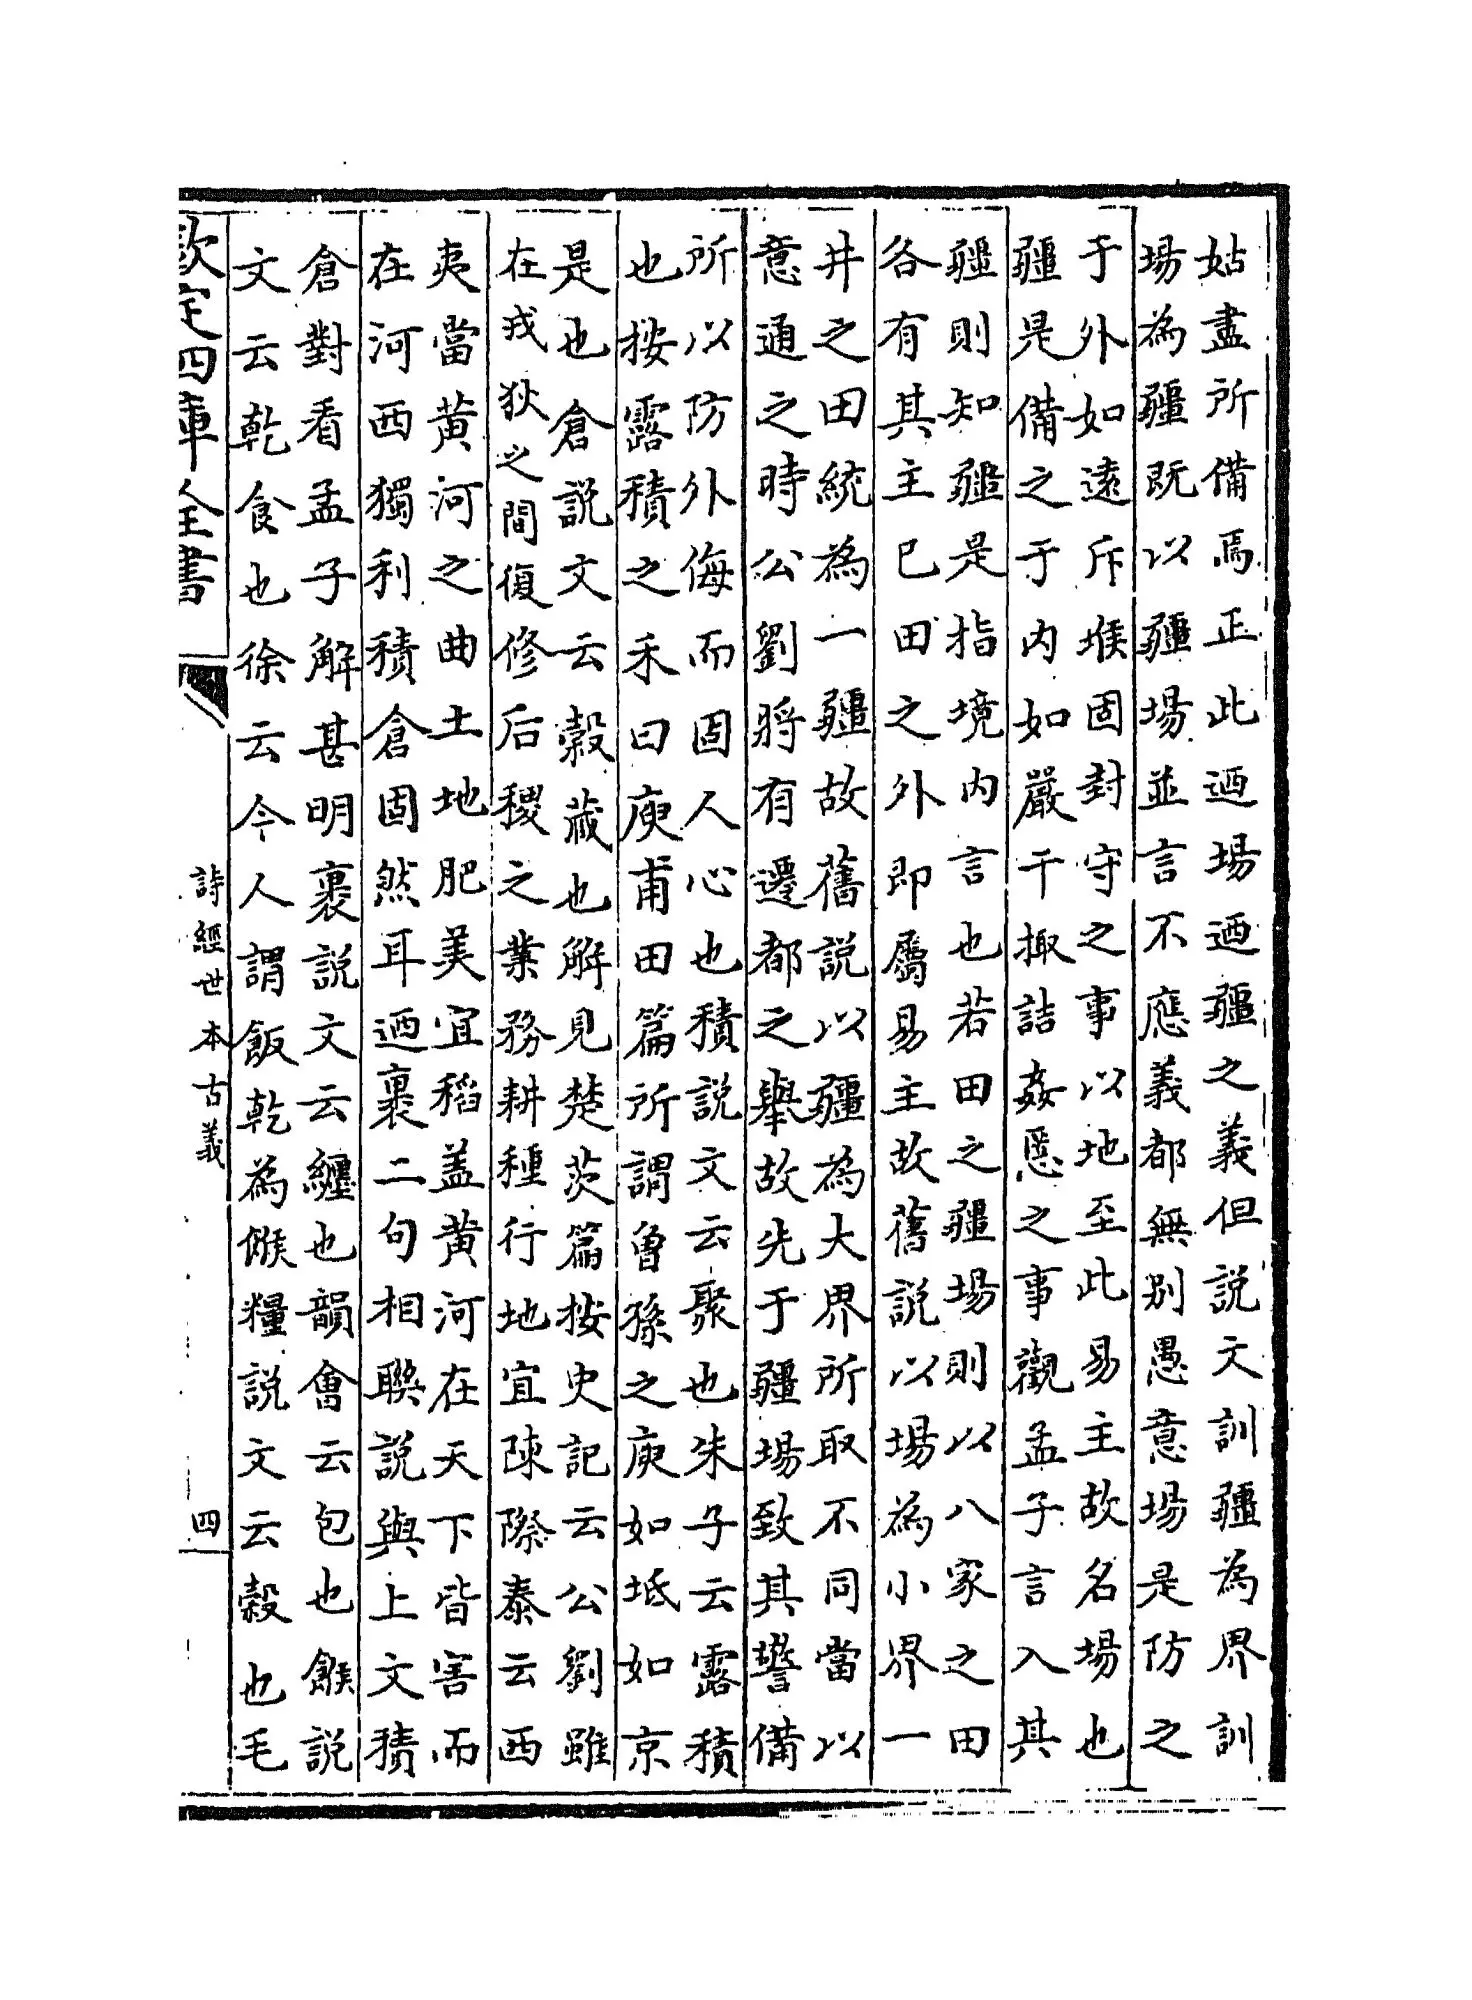 姑盡所備焉正此迺埸迺疆之義但説文訓疆為界訓
埸為疆既以疆埸並言不應義都無别愚意埸是防之
于外如遠斥堠固封守之事以地至此易主故名埸也
疆是備之于内如嚴干掫詰姦慝之事觀孟子言入其
疆則知疆是指境内言也若田之疆埸則以八家之田
各有其主已田之外即屬易主故舊説以埸為小界一
井之田統為一疆故舊説以疆為大界所取不同當以
意通之時公劉將有遷都之舉故先于疆埸致其警備
所以防外侮而固人心也積説文云聚也朱子云露積
也按露積之禾曰庾甫田篇所謂曾孫之庾如坻如京
是也倉説文云穀藏也解見楚茨篇按史記云公劉雖
在戎狄之間復修后稷之業務耕種行地宜陳際泰云西
夷當黄河之曲土地肥美宜稻盖黄河在天下皆害而
在河西獨利積倉固然耳迺裹二句相聯説與上文積
倉對看孟子解甚明裹説文云纏也韻會云包也餱説
文云乾食也徐云今人謂飯乾為餱糧説文云穀也毛
欽定四庫全書
詩經世本古義
四